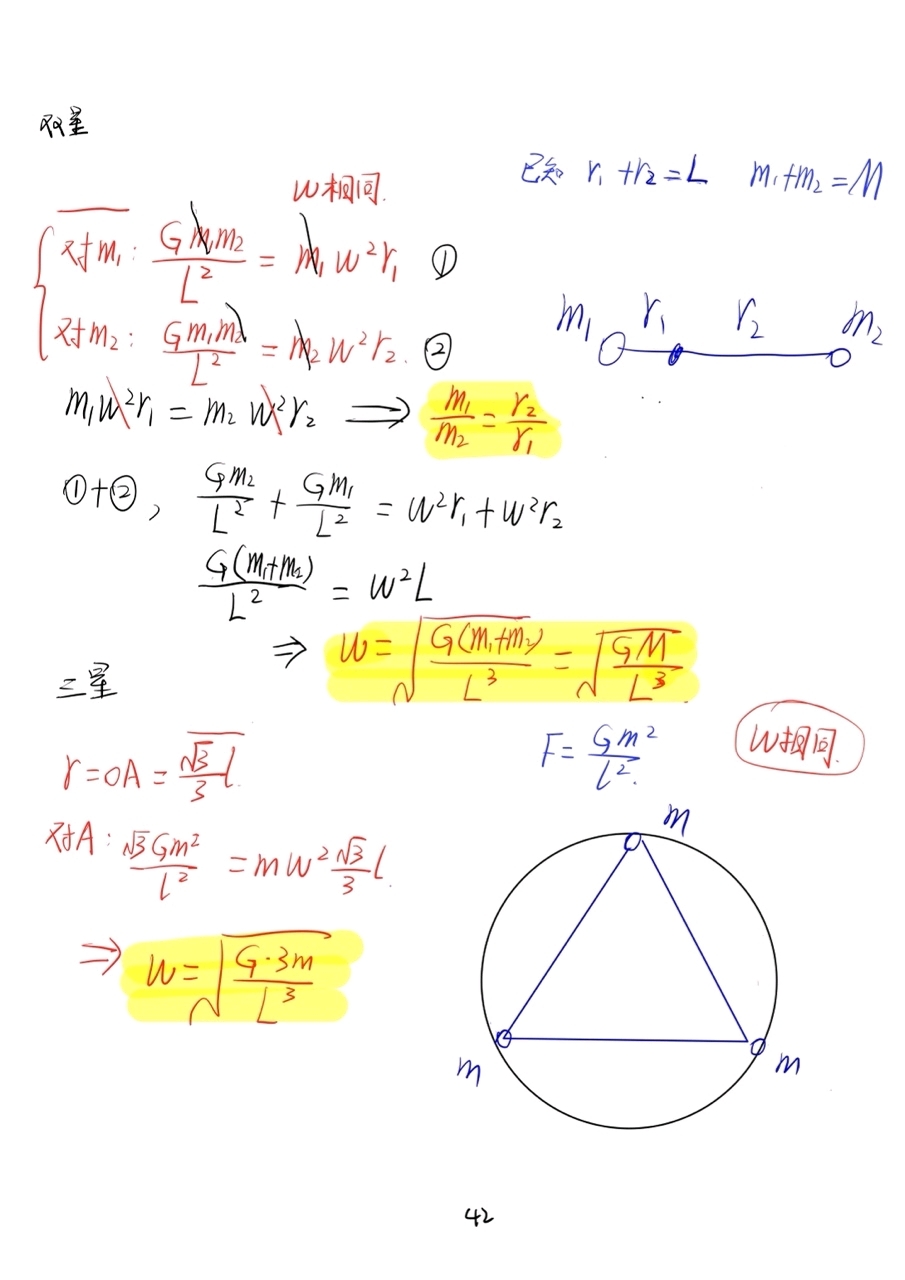 双星
已知 r₁+r₂=L  m₁+m₂=M
W相同.
对m₁: Gm₁m₂/L² = m₁w²r₁ ①
对m₂: Gm₁m₂/L² = m₂w²r₂. ②
m₁ r₁ r₂ m₂
m₁w²r₁ = m₂w²r₂ ⟹ m₁/m₂ = r₂/r₁
①+②, Gm₂/L² + Gm₁/L² = w²r₁+w²r₂
G(m₁+m₂)/L² = w²L
⇒ w = √(G(m₁+m₂)/L³) = √(GM/L³)
三星
r=OA=√3/3 l
F= Gm²/l².
W相同.
对A: √3Gm²/l² = mw² √3/3 l
⇒ w = √(G·3m/L³)
m
m
m
42